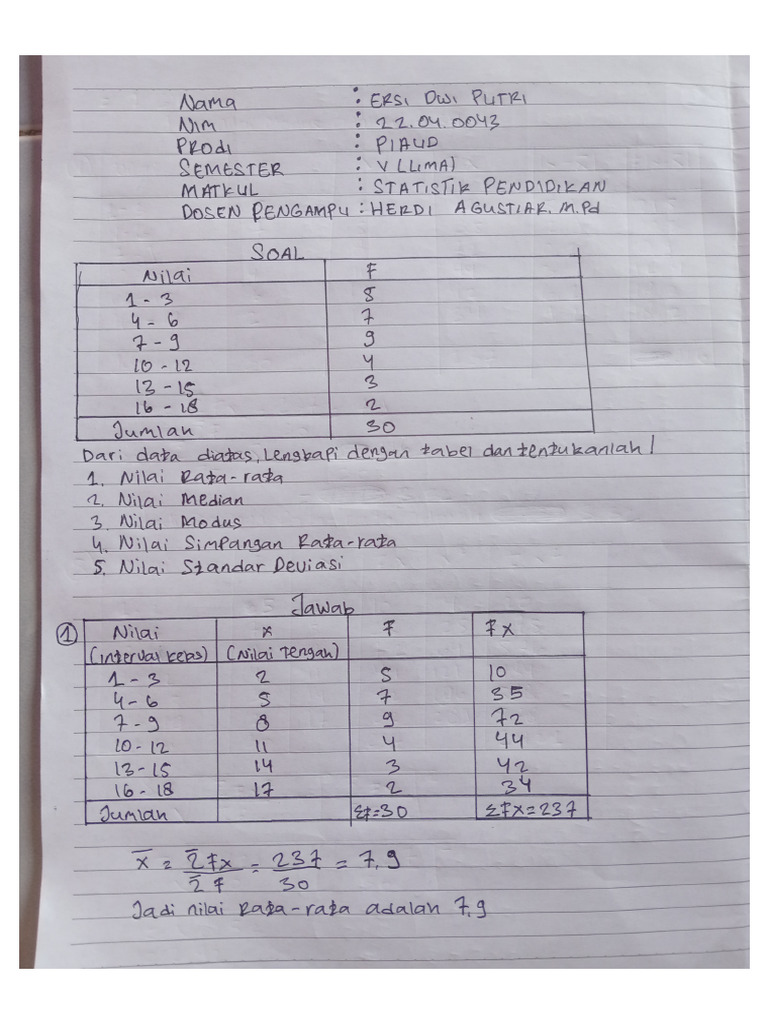 Nama : ERSI DWI PUTRI
NIM : 22.04.0043
PRODI : PIAUD
SEMESTER : V (LIMA)
MATKUL : STATISTIK PENDIDIKAN
DOSEN PENGAMPU : HERDI AGUSTIAR. M.Pd
SOAL
Nilai F
1 - 3 5
4 - 6 7
7 - 9 9
10 - 12 4
13 - 15 3
16 - 18 2
Jumlah 30
Dari data diatas, Lengkapi dengan tabel dan tentukanlah!
1. Nilai Rata-rata
2. Nilai Median
3. Nilai Modus
4. Nilai Simpangan Rata-rata
5. Nilai Standar Deviasi
Jawab
1 Nilai x F Fx
(interval kelas) (Nilai Tengah)
1 - 3 2 5 10
4 - 6 5 7 35
7 - 9 8 9 72
10 - 12 11 4 44
13 - 15 14 3 42
16 - 18 17 2 34
Jumlah Σf=30 ΣFx=237
x̄ = ΣFx/ΣF = 237/30 = 7,9
Jadi nilai Rata-rata adalah 7,9